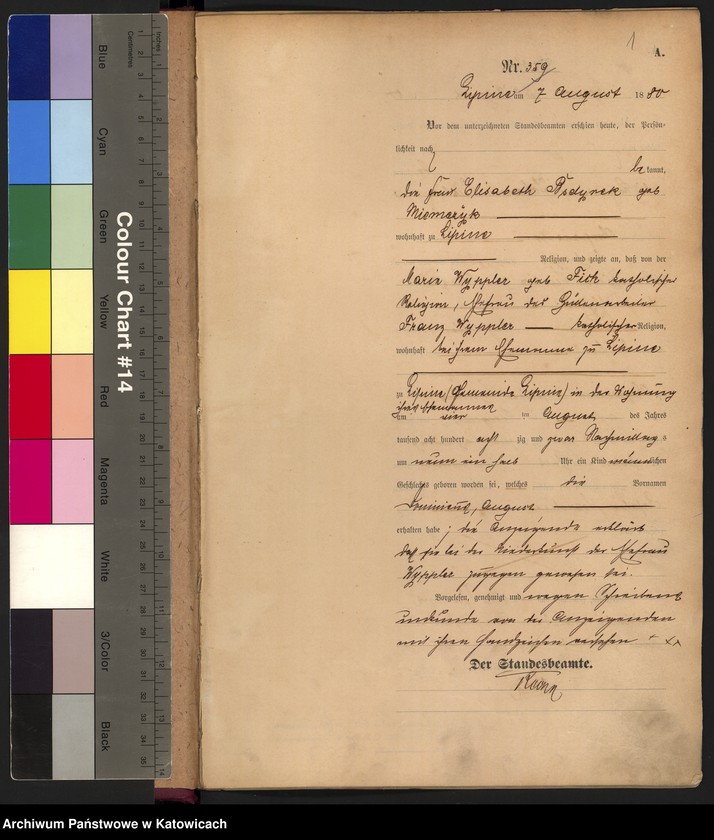 Blue
Cyan
Green
Yellow
Red
Magenta
White
3/Color
Black
Colour Chart #14
Centimetres
Inches
1
A.
Nr. 359
Lipine am 7 August 1880
Vor dem unterzeichneten Standesbeamten erschien heute, der Persön-
lichkeit nach
be kannt,
die Frau Elisabeth geb
wohnhaft zu Lipine
Religion, und zeigte an, daß von der
Marie Wyppler geb katholischer
Religion, Ehefrau des
Franz Wyppler katholischer Religion,
wohnhaft bei ihrem Ehemanne zu Lipine
zu Lipine (Gemeinde Lipine) in der Wohnung
ihres Ehemannes
am vier ten August des Jahres
tausend acht hundert acht zig und zwar Nachmittag s
um neun ein halb Uhr ein Kind männlichen
Geschlechts geboren worden sei, welches die Vornamen
August
erhalten habe; die Anzeigende erklärte
daß sie bei der Niederkunft der Ehefrau
Wyppler zugegen gewesen sei.
Vorgelesen, genehmigt und wegen Schreibens
unkunde von der Anzeigenden
mit ihren Handzeichen versehen
Der Standesbeamte.
Archiwum Państwowe w Katowicach